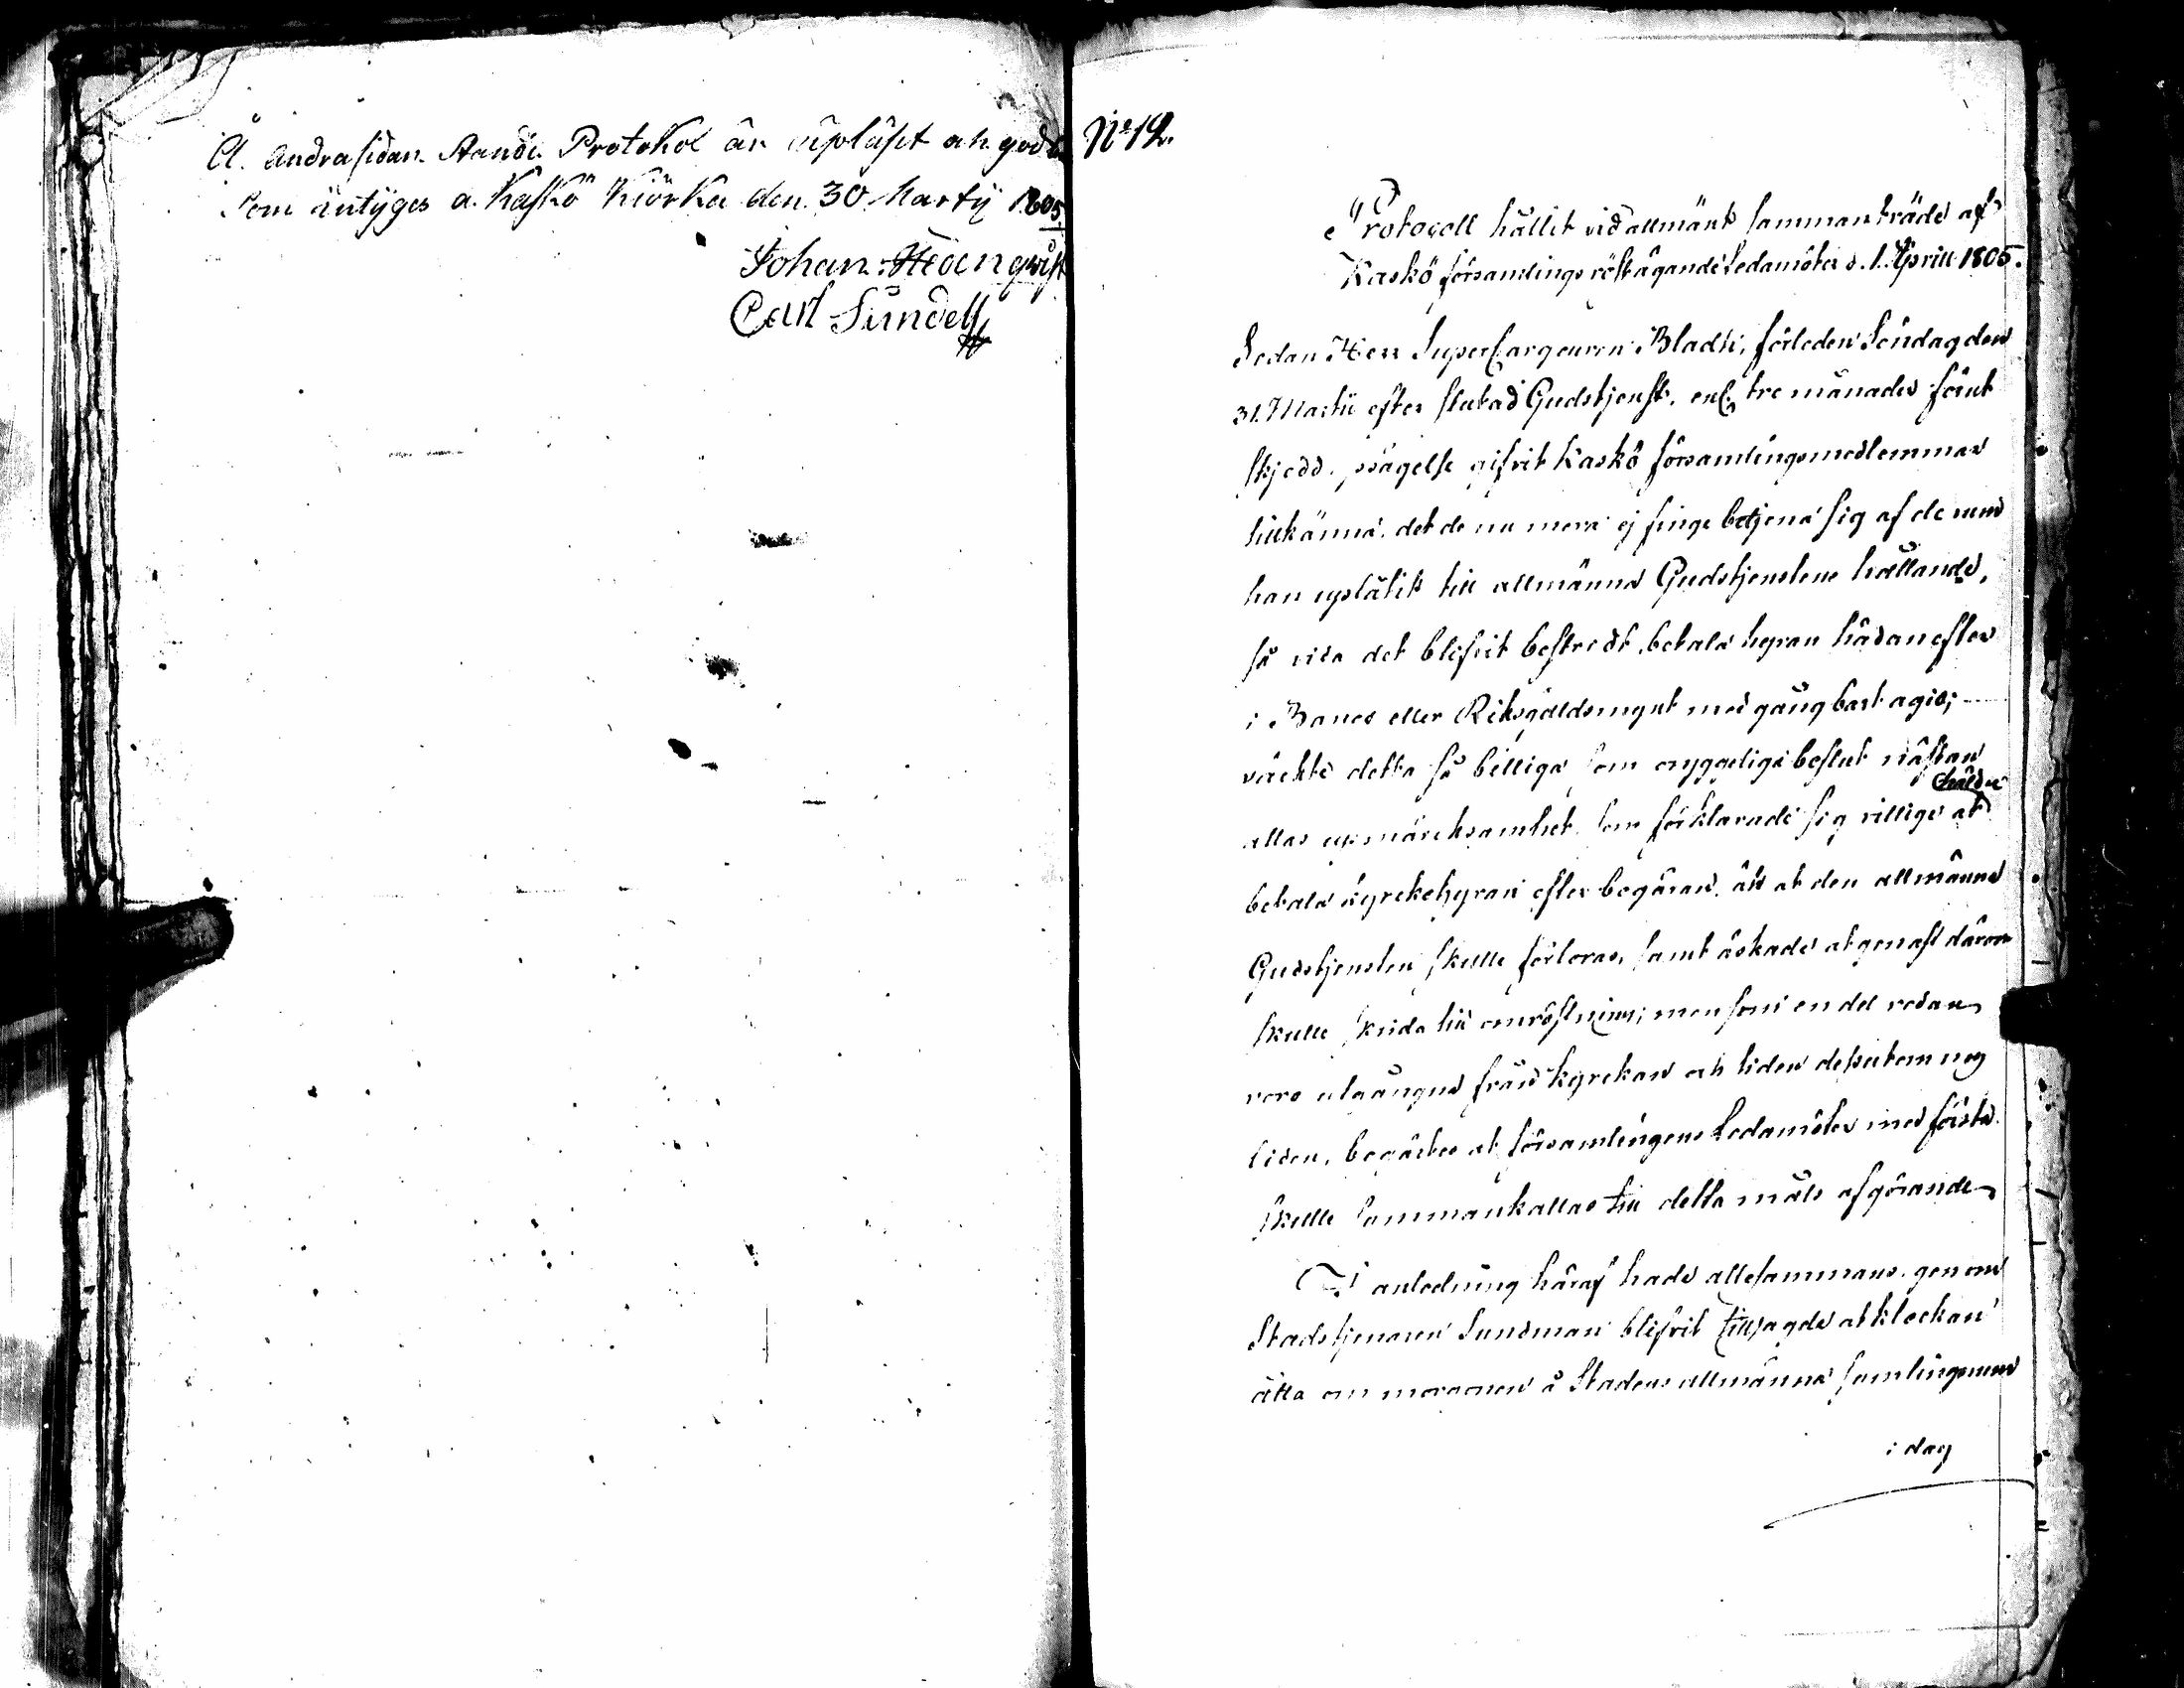 Å. Andrasidan. Stande. Protokol är upläset och godk
som äntyges a. Kaskö Kiörka den. 30. Marty 1805
Johan: Hedenqwist
Carl Sundell
N:o 12.
Protocoll hållit vid allmänt sammanträde af
Kaskö församlings röstägande Ledamöter d. 1. Aprill 1805.
Sedan Herr SuperCargeuren Bladh, förleden Söndag den
31. Martii efter slutad Gudstjenst, enl. tre månader förut
skjedd. sägelse gifvit Kaskö församlingsmedlemmar
tillkänna, det de nu mera ej finge betjena sig af de rum
han uplåtit till allmänna Gudstjenstens hållande,
så vida det blifvit bestridt, betala hyran hädanefter
i Banco eller Riksgäldsmynt med gångbart agio;
väckte detta så billiga som oryggeliga beslut nästan
allas upmärcksamhet, som förklarade sig villige at
heldre
betala kyrckehyran efter begäran, än at den allmänna
Gudstjensten skulle förloras, samt äskade at genast därom
skulle skrida till omröstning; men som en del redan
voro utgångne från kyrckan och tiden dessutom nog
liden, begärtes at församlingens Ledamöter med första
skulle sammankallas till detta måls afgörande
I anledning häraf hade allesammans genom
Stadstjenaren Sundman blifvit tillsagde at klockan
åtta om morgonen å Stadens allmänna samlingsrum
i dag